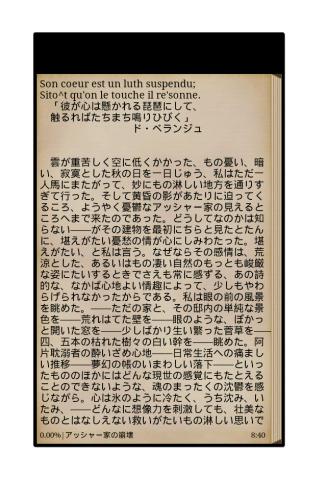 Son coeur est un luth suspendu;
Sito^t qu'on le touche il re'sonne.
「彼が心は懸かれる琵琶にして、
触るればたちまち鳴りひびく」
ド・ベランジュ
雲が重苦しく空に低くかかった、もの憂い、暗
い、寂寞とした秋の日を一日じゅう、私はただ一
人馬にまたがって、妙にもの淋しい地方を通りす
ぎて行った。そして黄昏の影があたりに迫ってく
るころ、ようやく憂鬱なアッシャー家の見えると
ころへまで来たのであった。どうしてなのかは知
らない――がその建物を最初にちらと見たとたん
に、堪えがたい憂愁の情が心にしみわたった。堪
えがたい、と私は言う。なぜならその感情は、荒
涼とした、あるいはもの凄い自然のもっとも峻厳
な姿にたいするときでさえも常に感ずる、あの詩
的な、なかば心地よい情趣によって、少しもやわ
らげられなかったからである。私は眼の前の風景
を眺めた。――ただの家と、その邸内の単純な景
色を――荒れはてた壁を――眼のような、ぽかっ
と開いた窓を――少しばかり生い繁った菅草を――
四、五本の枯れた樹々の白い幹を――眺めた。阿
片耽溺者の酔いざめ心地――日常生活への痛まし
い推移――夢幻の帳のいまわしい落下――といっ
たもののほかにはどんな現世の感覚にもたとえる
ことのできないような、魂のまったくの沈鬱を感
じながら。心は氷のように冷たく、うち沈み、い
たみ、――どんなに想像力を刺激しても、壮美な
ものとはなしえない救いがたいもの淋しい思いで
0.00% | アッシャー家の崩壊
8:40